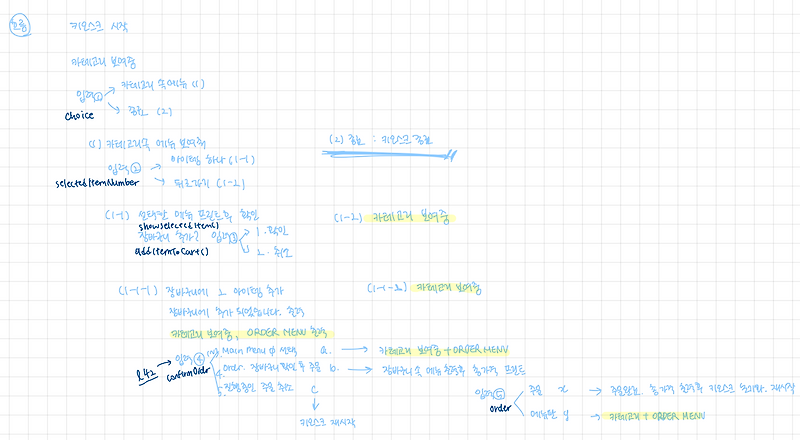 흐름
키오스크 시작
카테고리 보여줌
입력① → 카테고리 속 메뉴 (1)
→ 종료 (2)
choice
(1) 카테고리 속 메뉴 보여줘
(2) 종료 : 키오스크 종료
입력② → 아이템 하나 (1-1)
selectedItemNumber → 뒤로가기 (1-2)
(1-1) 선택한 메뉴 프린트 후 확인
(1-2) 카테고리 보여줌
showSelectedItem()
장바구니 추가? 입력③ 1. 확인
addItemToCart() 2. 취소
(1-1-1) 장바구니에 그 아이템 추가
(1-1-2) 카테고리 보여줌
장바구니에 추가 되었습니다. 출력
카테고리 보여줌, ORDER MENU 출력
입력④ Main menu 중 선택 a. → 카테고리 보여줌 + ORDER MENU
confirmOrder
4. Order. 장바구니 확인 후 주문 b. → 장바구니 속 메뉴 출력 후 총가격 프린트
5. 진행중인 주문 취소 c
입력⑤ 주문 x → 주문완료. 총가격 출력후 키오스크 재시작
order 메뉴판 y → 카테고리 + ORDER MENU
키오스크 재시작